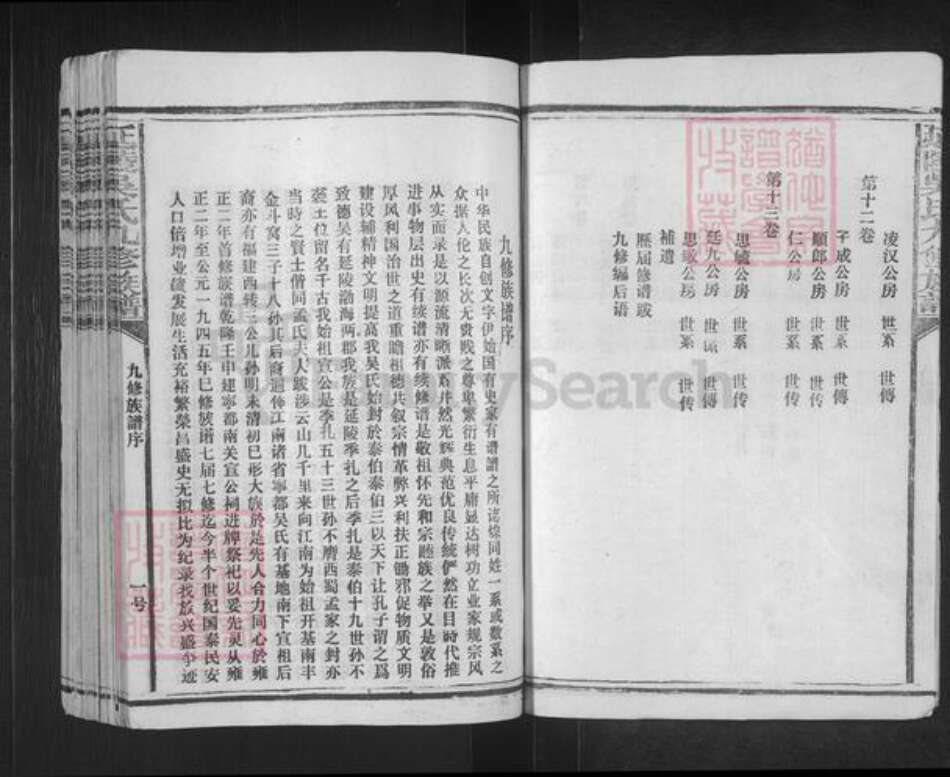 第十二卷
凌汉公房 世系 世傳
子成公房 世系 世傳
順郎公房 世系 世传
仁公房 世系 世传
第十三卷
思敏公房 世系 世传
廷九公房 世系 世傳
思敬公房 世系 世传
補遺
歷届修谱或
九修编后语
九修族譜序
中华民族自创文字伊始国有史家有谱譜之所记缘同姓一系或数系之
众派人伦之长次无贵贱之尊卑繁衍生息平庸显达树功立业家规宗风
从实而录是以源流清晰派系井然光辉典范优良传统俨然在目時代推
进事物层出史有续谱亦有续修谱是敬祖怀先和宗睦族之举又是敦俗
厚风利国治世之道重瞻祖德共叙宗情革弊兴利扶正锄邪促物质文明
建设辅精神文明提高我吴氏始封於泰伯泰伯三以天下让孔子谓之爲
致德吴有延陵渤海两郡我族是延陵季扎之后季扎是泰伯十九世孙不
袭土位留名千古我始祖宣公是季孔五十三世孙不磨西蜀孟家之封亦
当時之賢士偕同孟氏夫人跋涉云山几千里来向江南为始祖开基南丰
金斗窝三子十八孙其后裔遍佈江南诸省寧都吴氏有基地南下宣祖后
裔亦有福建西转三公儿孙明末清初巳形大族於是先人合力同心於雍
正二年首修族谱乾隆壬申建寧都南关宣公祠进牌祭祀以妥先灵从雍
正二年至公元一九四五年巳修族谱七届七修迄今半个世纪国泰民安
人口倍增业绩发展生活充裕繁榮昌盛史无拟比为纪录我族兴盛事迹
九修族譜序
一号
吴氏九修族譜
FamilySearch